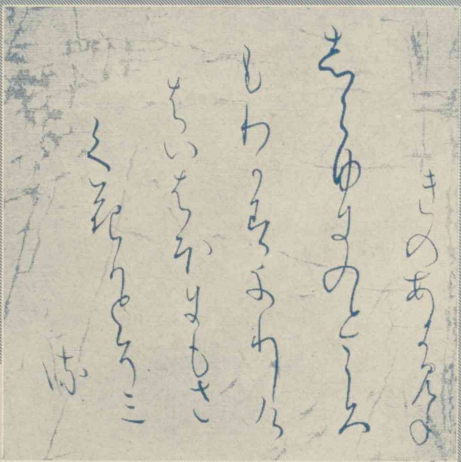 きのあきみね
しらゆきのところ
もわかすふりしけ
はいはほにもさ
く花とこそみ
れ